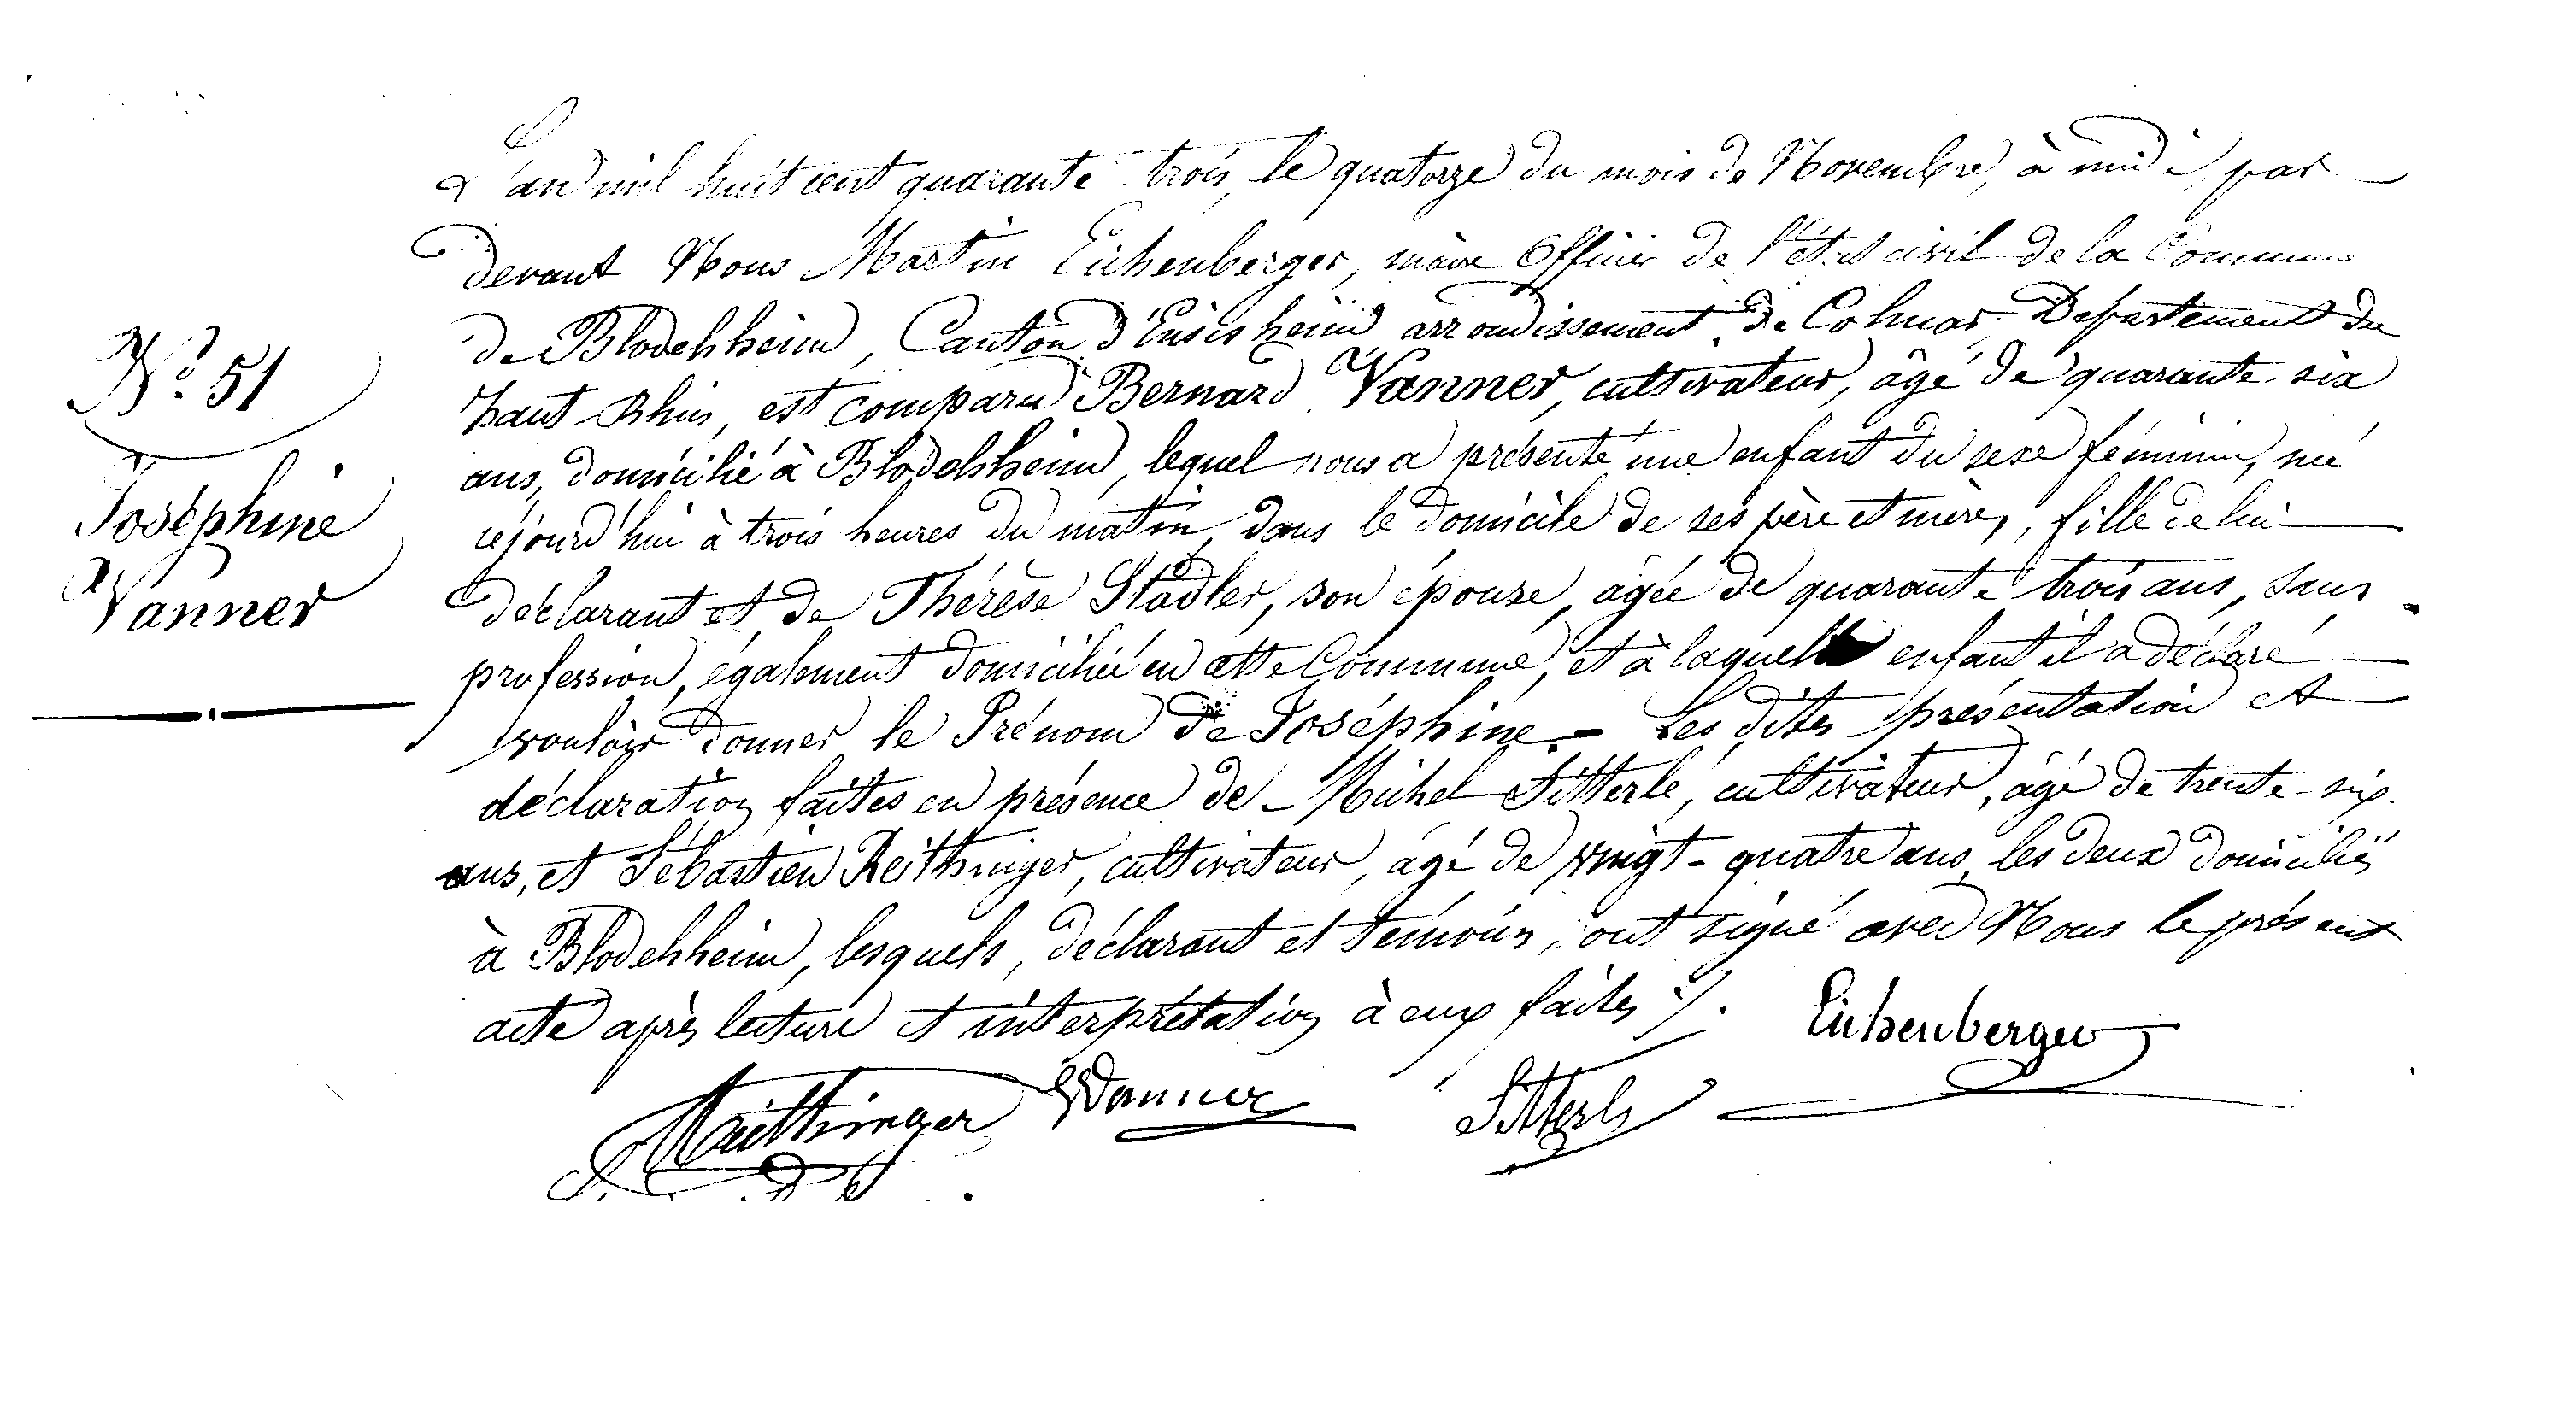 N.º 51
Joséphine
Vanner
L'an mil huit cent quarante trois, le quatorze du mois de Novembre, à midi, par
devant Nous Martin Eichenberger, maire Officier de l'état civil de la Commune
de Blodelsheim, Canton d'Ensisheim, arrondissement de Colmar, Departement du
haut Rhin, est comparu Bernard Vanner, cultivateur, âgé de quarante-six
ans, domicilié à Blodelsheim, lequel nous a présenté une enfant du sexe féminin, née
cejourd'hui à trois heures du matin, dans le domicile de ses père et mère, fille de lui
déclarant et de Thérèse Stadler, son épouse, âgée de quarante trois ans, sans
profession, également domiciliée en cette Commune, et à laquelle enfant il a déclaré
vouloir donner le Prénom de Joséphine. - Les dites présentation et
déclaration faites en présence de Michel Sitterlé, cultivateur, âgé de trente-six
ans, et Sébastien Reithinger, cultivateur, âgé de vingt-quatre ans, les deux domiciliés
à Blodelsheim, lesquels, déclarant et témoins, ont signé avec Nous le présent
acte après lecture et interprétation à eux faites ./.
Eichenberger
Raithinger B Vanner Sitterle